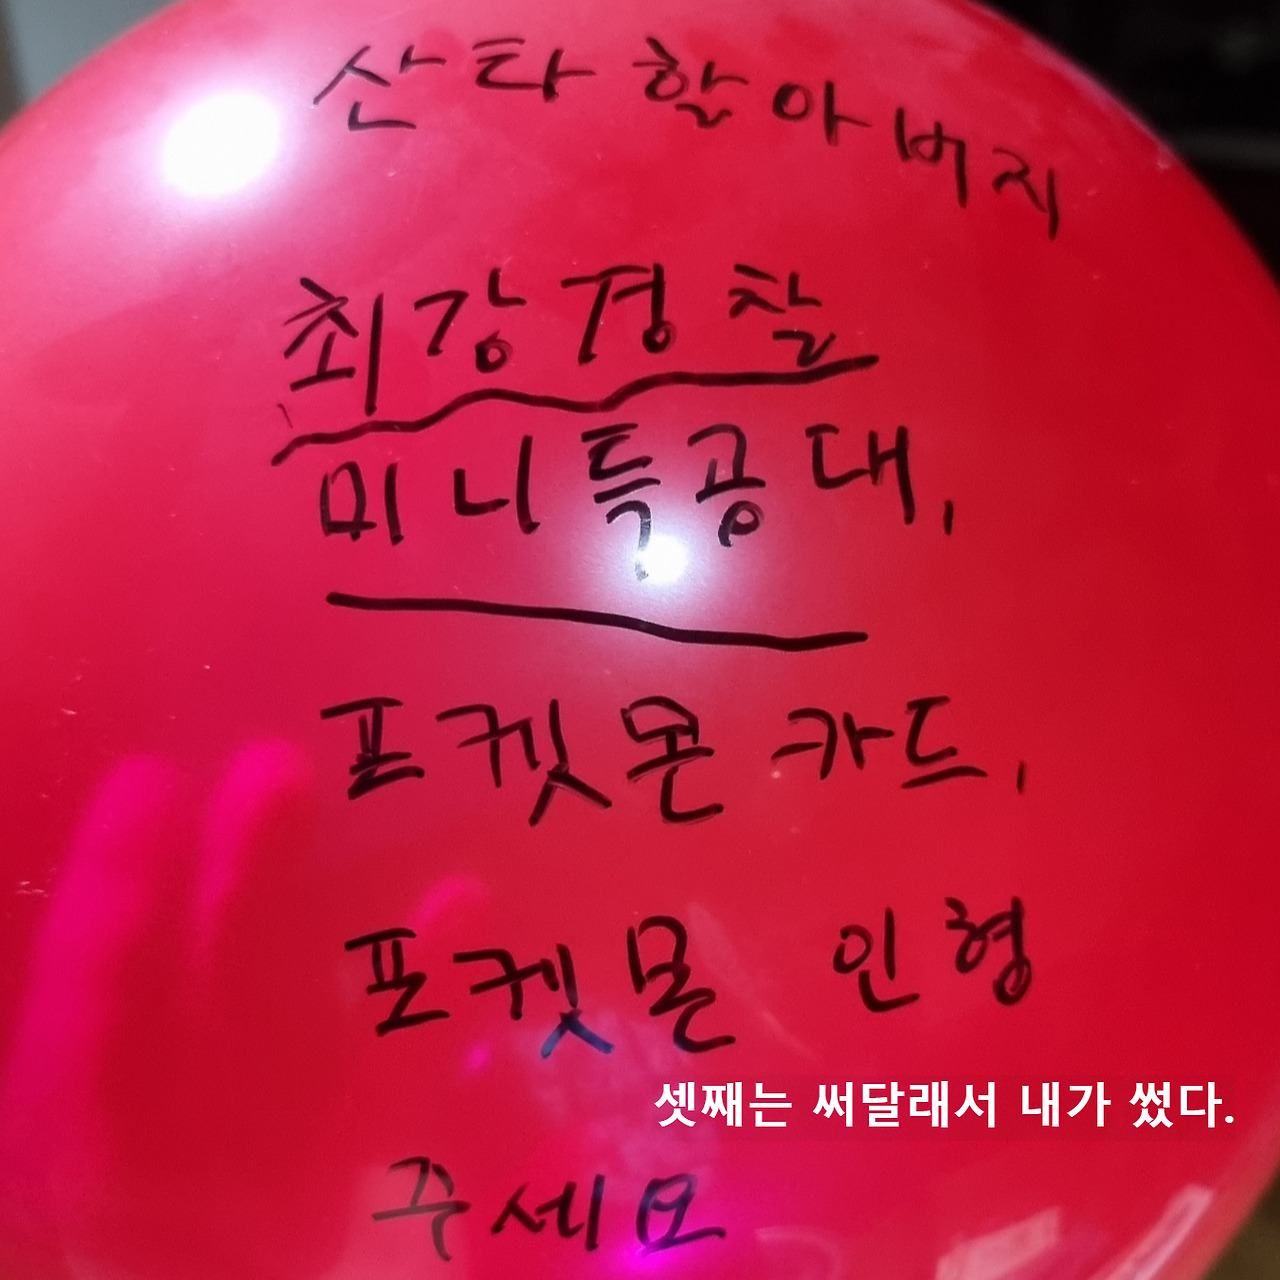 산타할아버지
최강경찰
미니특공대,
포켓몬 카드,
포켓몬 인형
셋째는 써달래서 내가 썼다.
주세요